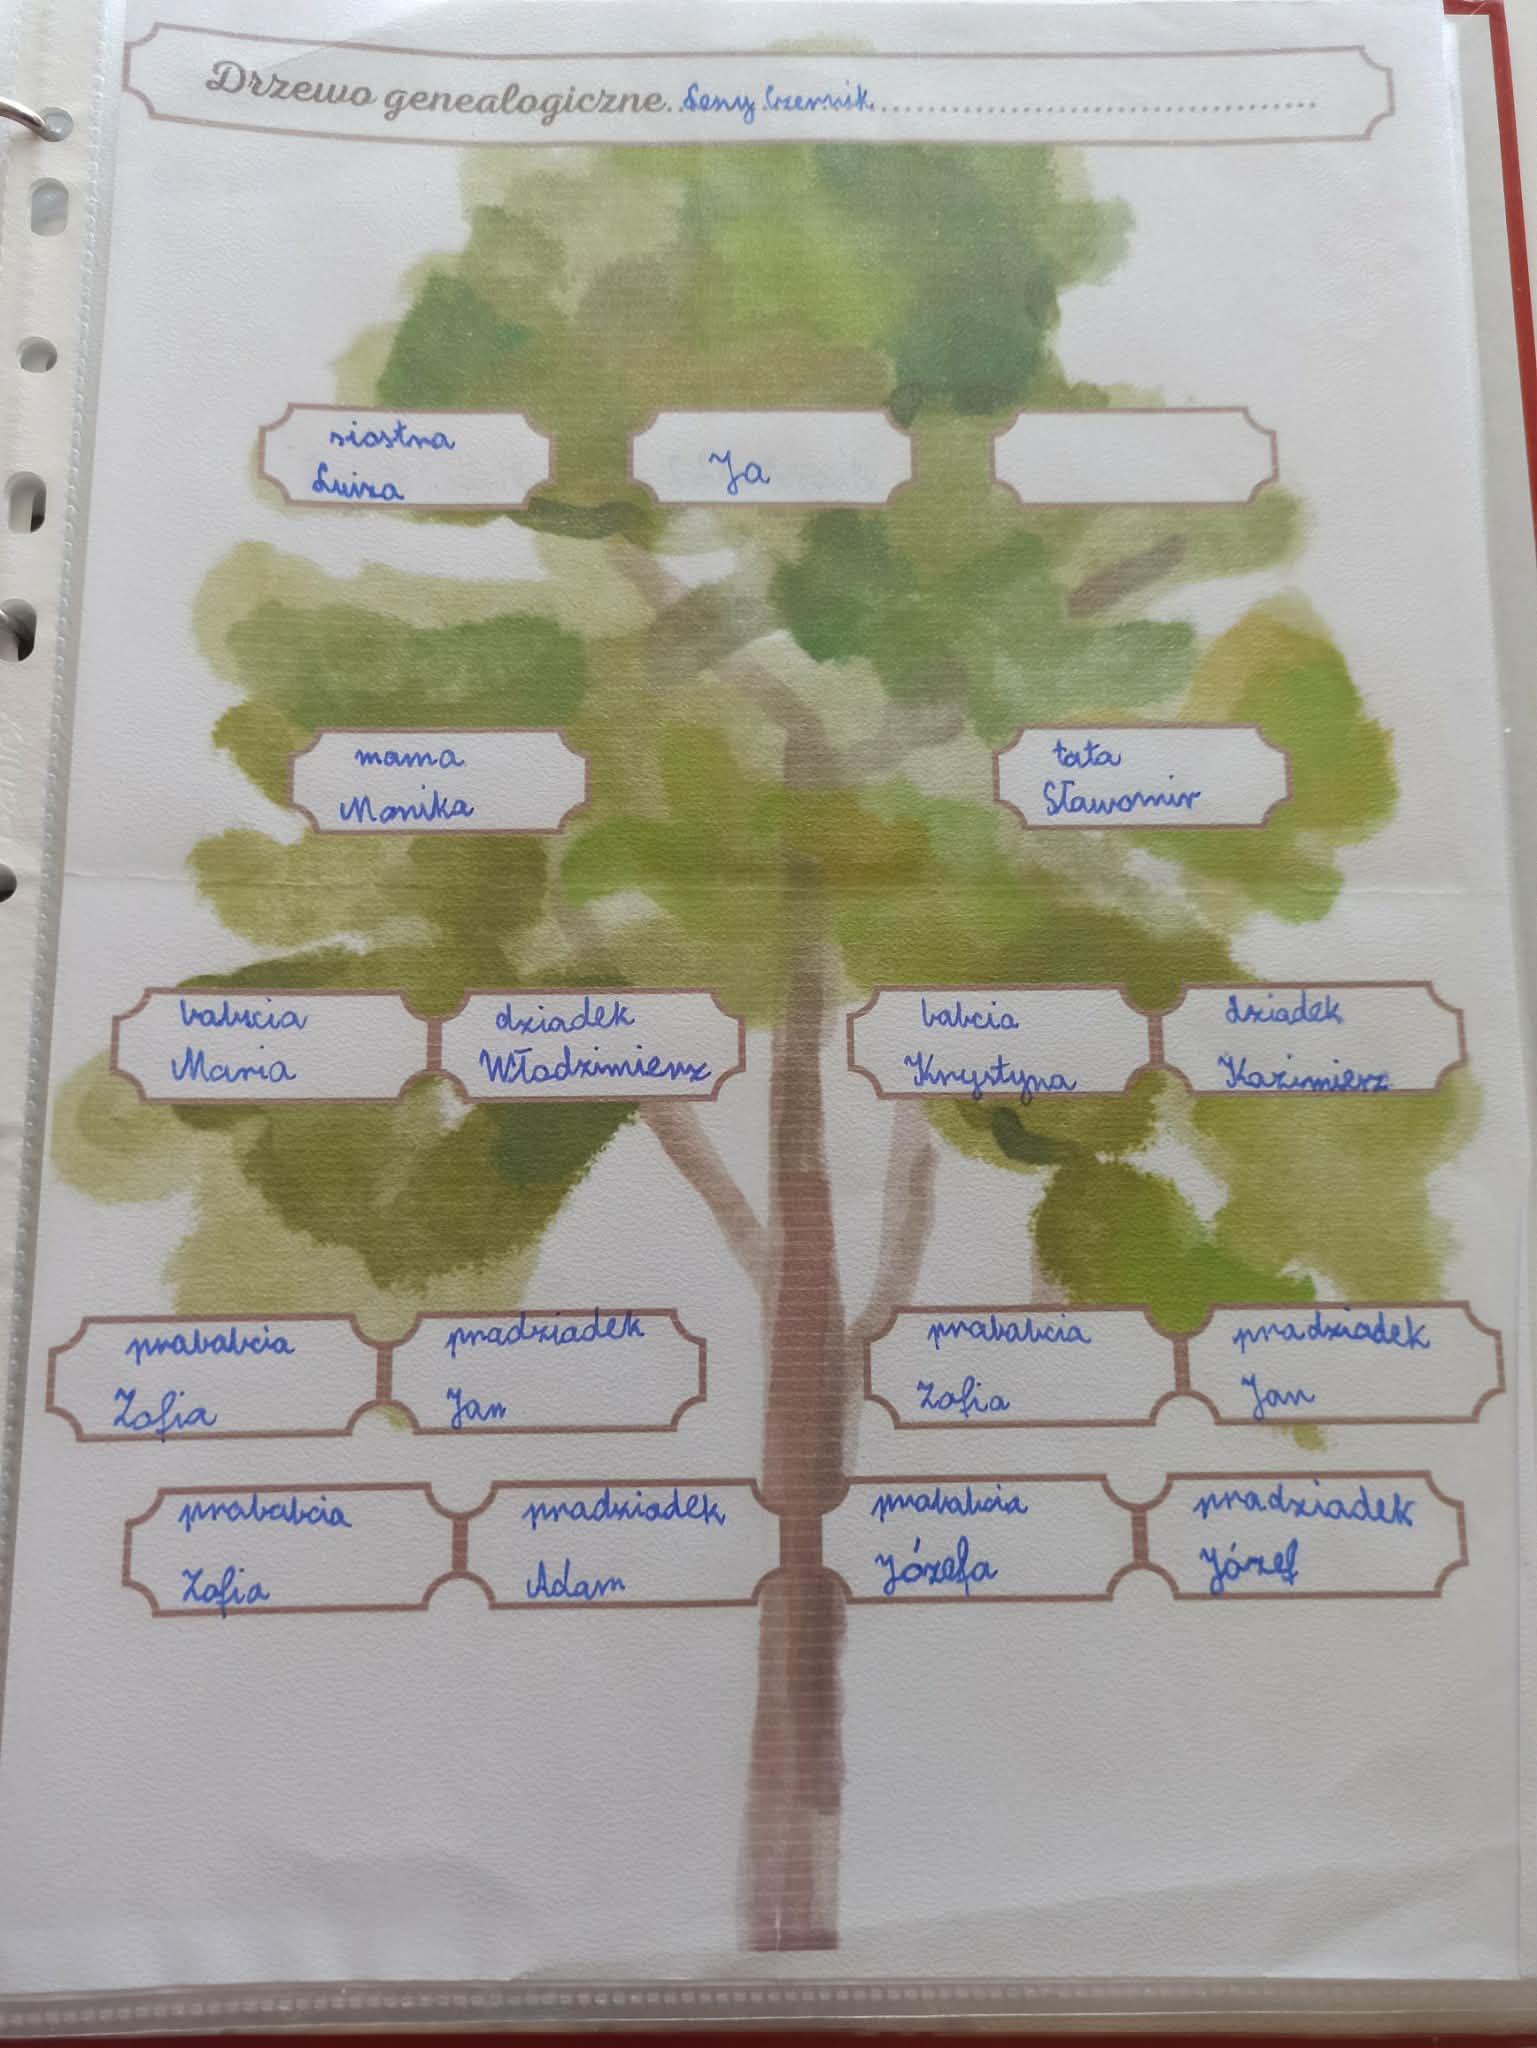 Drzewo genealogiczne Leny Czernik
siostra
Luiza
Ja
mama
Monika
tata
Sławomir
babcia
Maria
dziadek
Włodzimierz
babcia
Krystyna
dziadek
Kazimierz
prababcia
Zofia
pradziadek
Jan
prababcia
Zofia
pradziadek
Jan
prababcia
Zofia
pradziadek
Adam
prababcia
Józefa
pradziadek
Józef